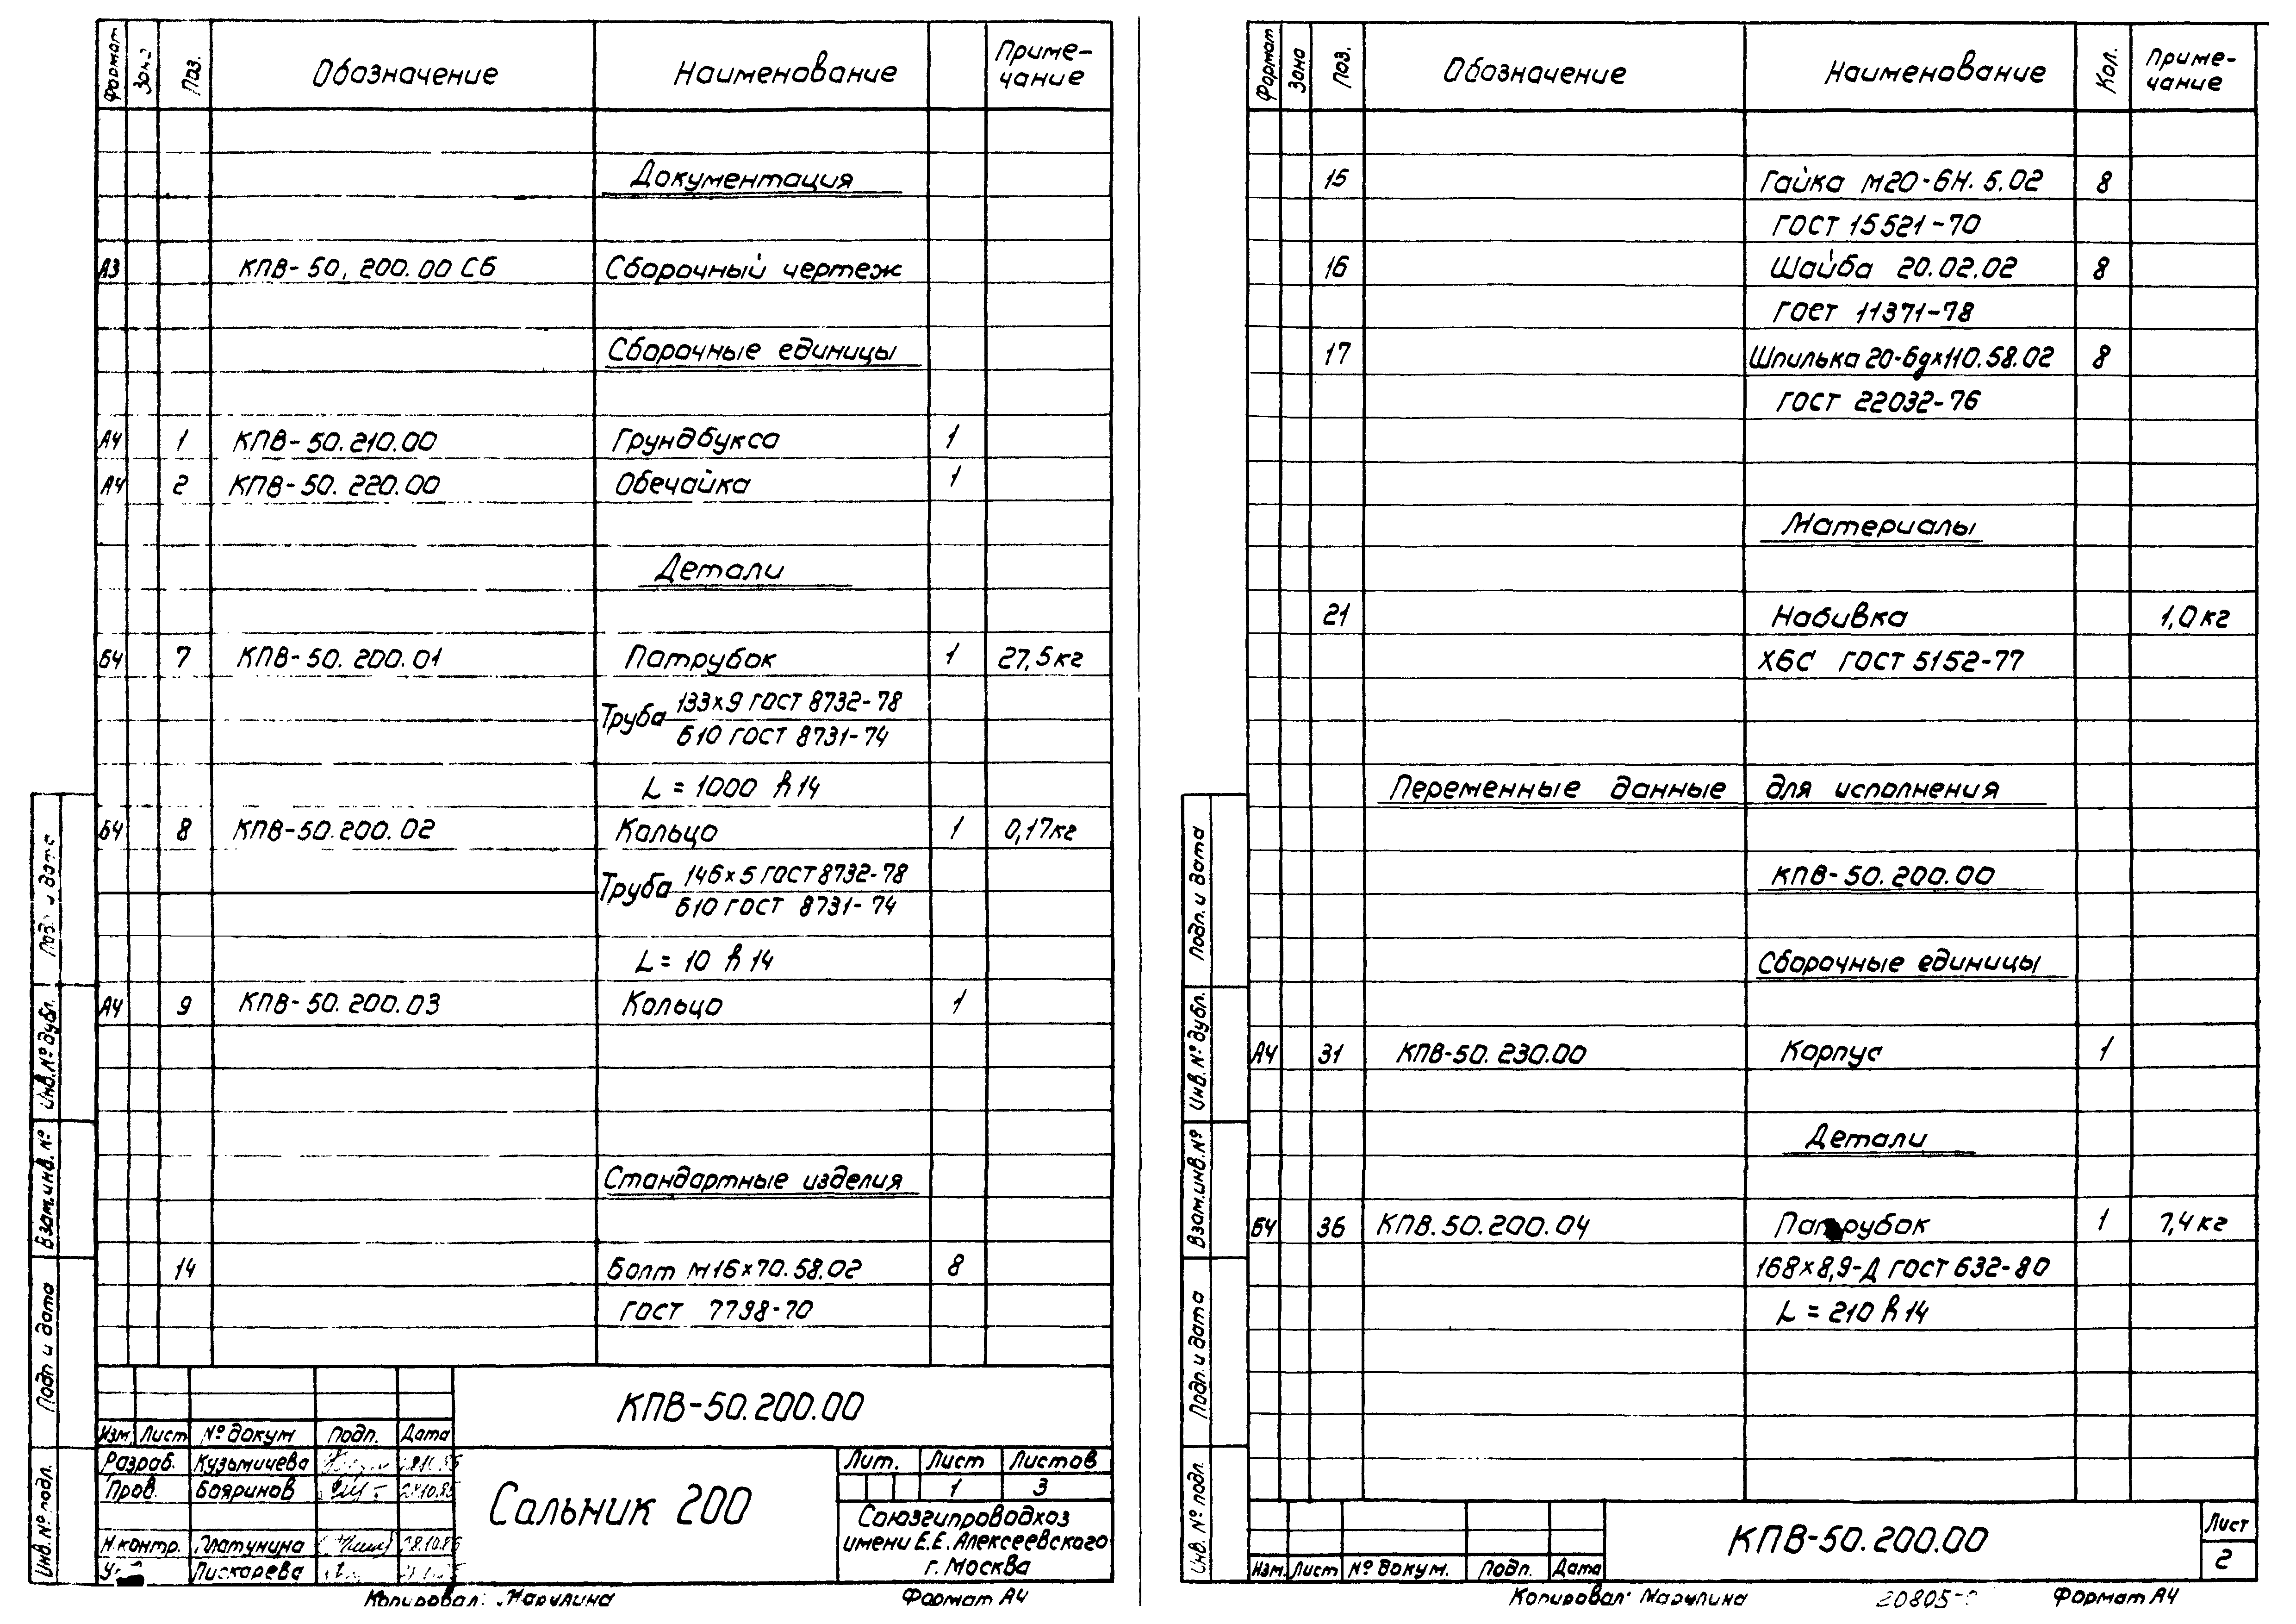 Формат Зона Поз. Обозначение Наименование Приме-
чание
Документация
А3 КПВ-50.200.00 СБ Сборочный чертеж
Сборочные единицы
А4 1 КПВ-50.210.00 Грундбукса 1
А4 2 КПВ-50.220.00 Обечайка 1
Детали
БЧ 7 КПВ-50.200.01 Патрубок 1 27,5кг
Труба 133х9 ГОСТ 8732-78
Б10 ГОСТ 8731-74
L = 1000 h14
БЧ 8 КПВ-50.200.02 Кольцо 1 0,17кг
Труба 146х5 ГОСТ 8732-78
Б10 ГОСТ 8731-74
L = 10 h14
А4 9 КПВ-50.200.03 Кольцо 1
Стандартные изделия
14 Болт М16х70.58.02 8
ГОСТ 7798-70
КПВ-50.200.00
Изм. Лист № докум Подп. Дата
Разраб. Кузьмичева
Пров. Бояринов
Н.контр. Платунина 28.10.85
Пискарева
Сальник 200
Лит. Лист Листов
1 3
Союзгипроводхоз
имени Е.Е. Алексеевского
г. Москва
Копировал: Марулина Формат А4
и дата
Инв. № дубл.
Взам.инв. №
Подп и дата
Инв. № подл.
Формат Зона Поз. Обозначение Наименование Кол. Приме-
чание
15 Гайка М20-6Н.5.02 8
ГОСТ 15521-70
16 Шайба 20.02.02 8
ГОСТ 11371-78
17 Шпилька 20-6gх110.58.02 8
ГОСТ 22032-76
Материалы
21 Набивка 1,0кг
ХБС ГОСТ 5152-77
Переменные данные для исполнения
КПВ-50.200.00
Сборочные единицы
А4 31 КПВ-50.230.00 Корпус 1
Детали
БЧ 36 КПВ.50.200.04 Патрубок 1 7,4кг
168х8,9-Д ГОСТ 632-80
L = 210 h14
КПВ-50.200.00
Лист
2
Изм. Лист № докум. Подп. Дата
Копировал: Марулина 20805- Формат А4
Подп. и дата
Инв. № дубл.
Взам.инв. №
Подп. и дата
Инв. № подл.